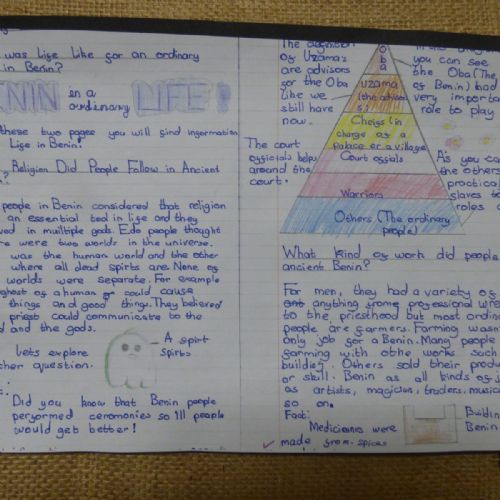 was Life Like for an ordinary
in Benin?
ENIN in a ordinary LIFE!
these two pages you will find ingormation
Life in Benin.
Religion Did People Follow in Ancient
?
people in Benin considered that religion
an essential tool in life and they
ved in muiltiple gods. Edo people thought
re were two worlds in the universe.
was the human world and the other
where all dead spirts are. None of
worlds were separate. For example
ghost of a human or could cause
things and good things. They believed
priest could communicate to the
d and the gods.
A spirt
Spirts
Lets explore
ther question.
Did you know that Benin people
performed ceremonies so ill people
would get better!
The definition
of Uzamas
are advisors
for the Oba
like we
still have
now.
The court
officials helps
around the
court.
Oba
UZAMA
(the advisors)
Cheifs (in
charge of a
palace or a village)
Court officials
Warriors
Others (The ordinary
people)
you can see
the Oba (The
of Benin) had
very importa
role to play
As you ca
the others
practical
slaves to
roles
What kind of work did people
ancient Benin?
For men, they had a variety of
anything from professional wre
to the priesthood but most ordin
people are farmers. Farming wasn
only job for a Benin. Many people
farming with othe works such
building. Others sold their produ
or skill. Benin as all kinds of j
as artists, magician, traders, music
so on.
Fact:
Medicienes were
made from spices
Buildin
Benin